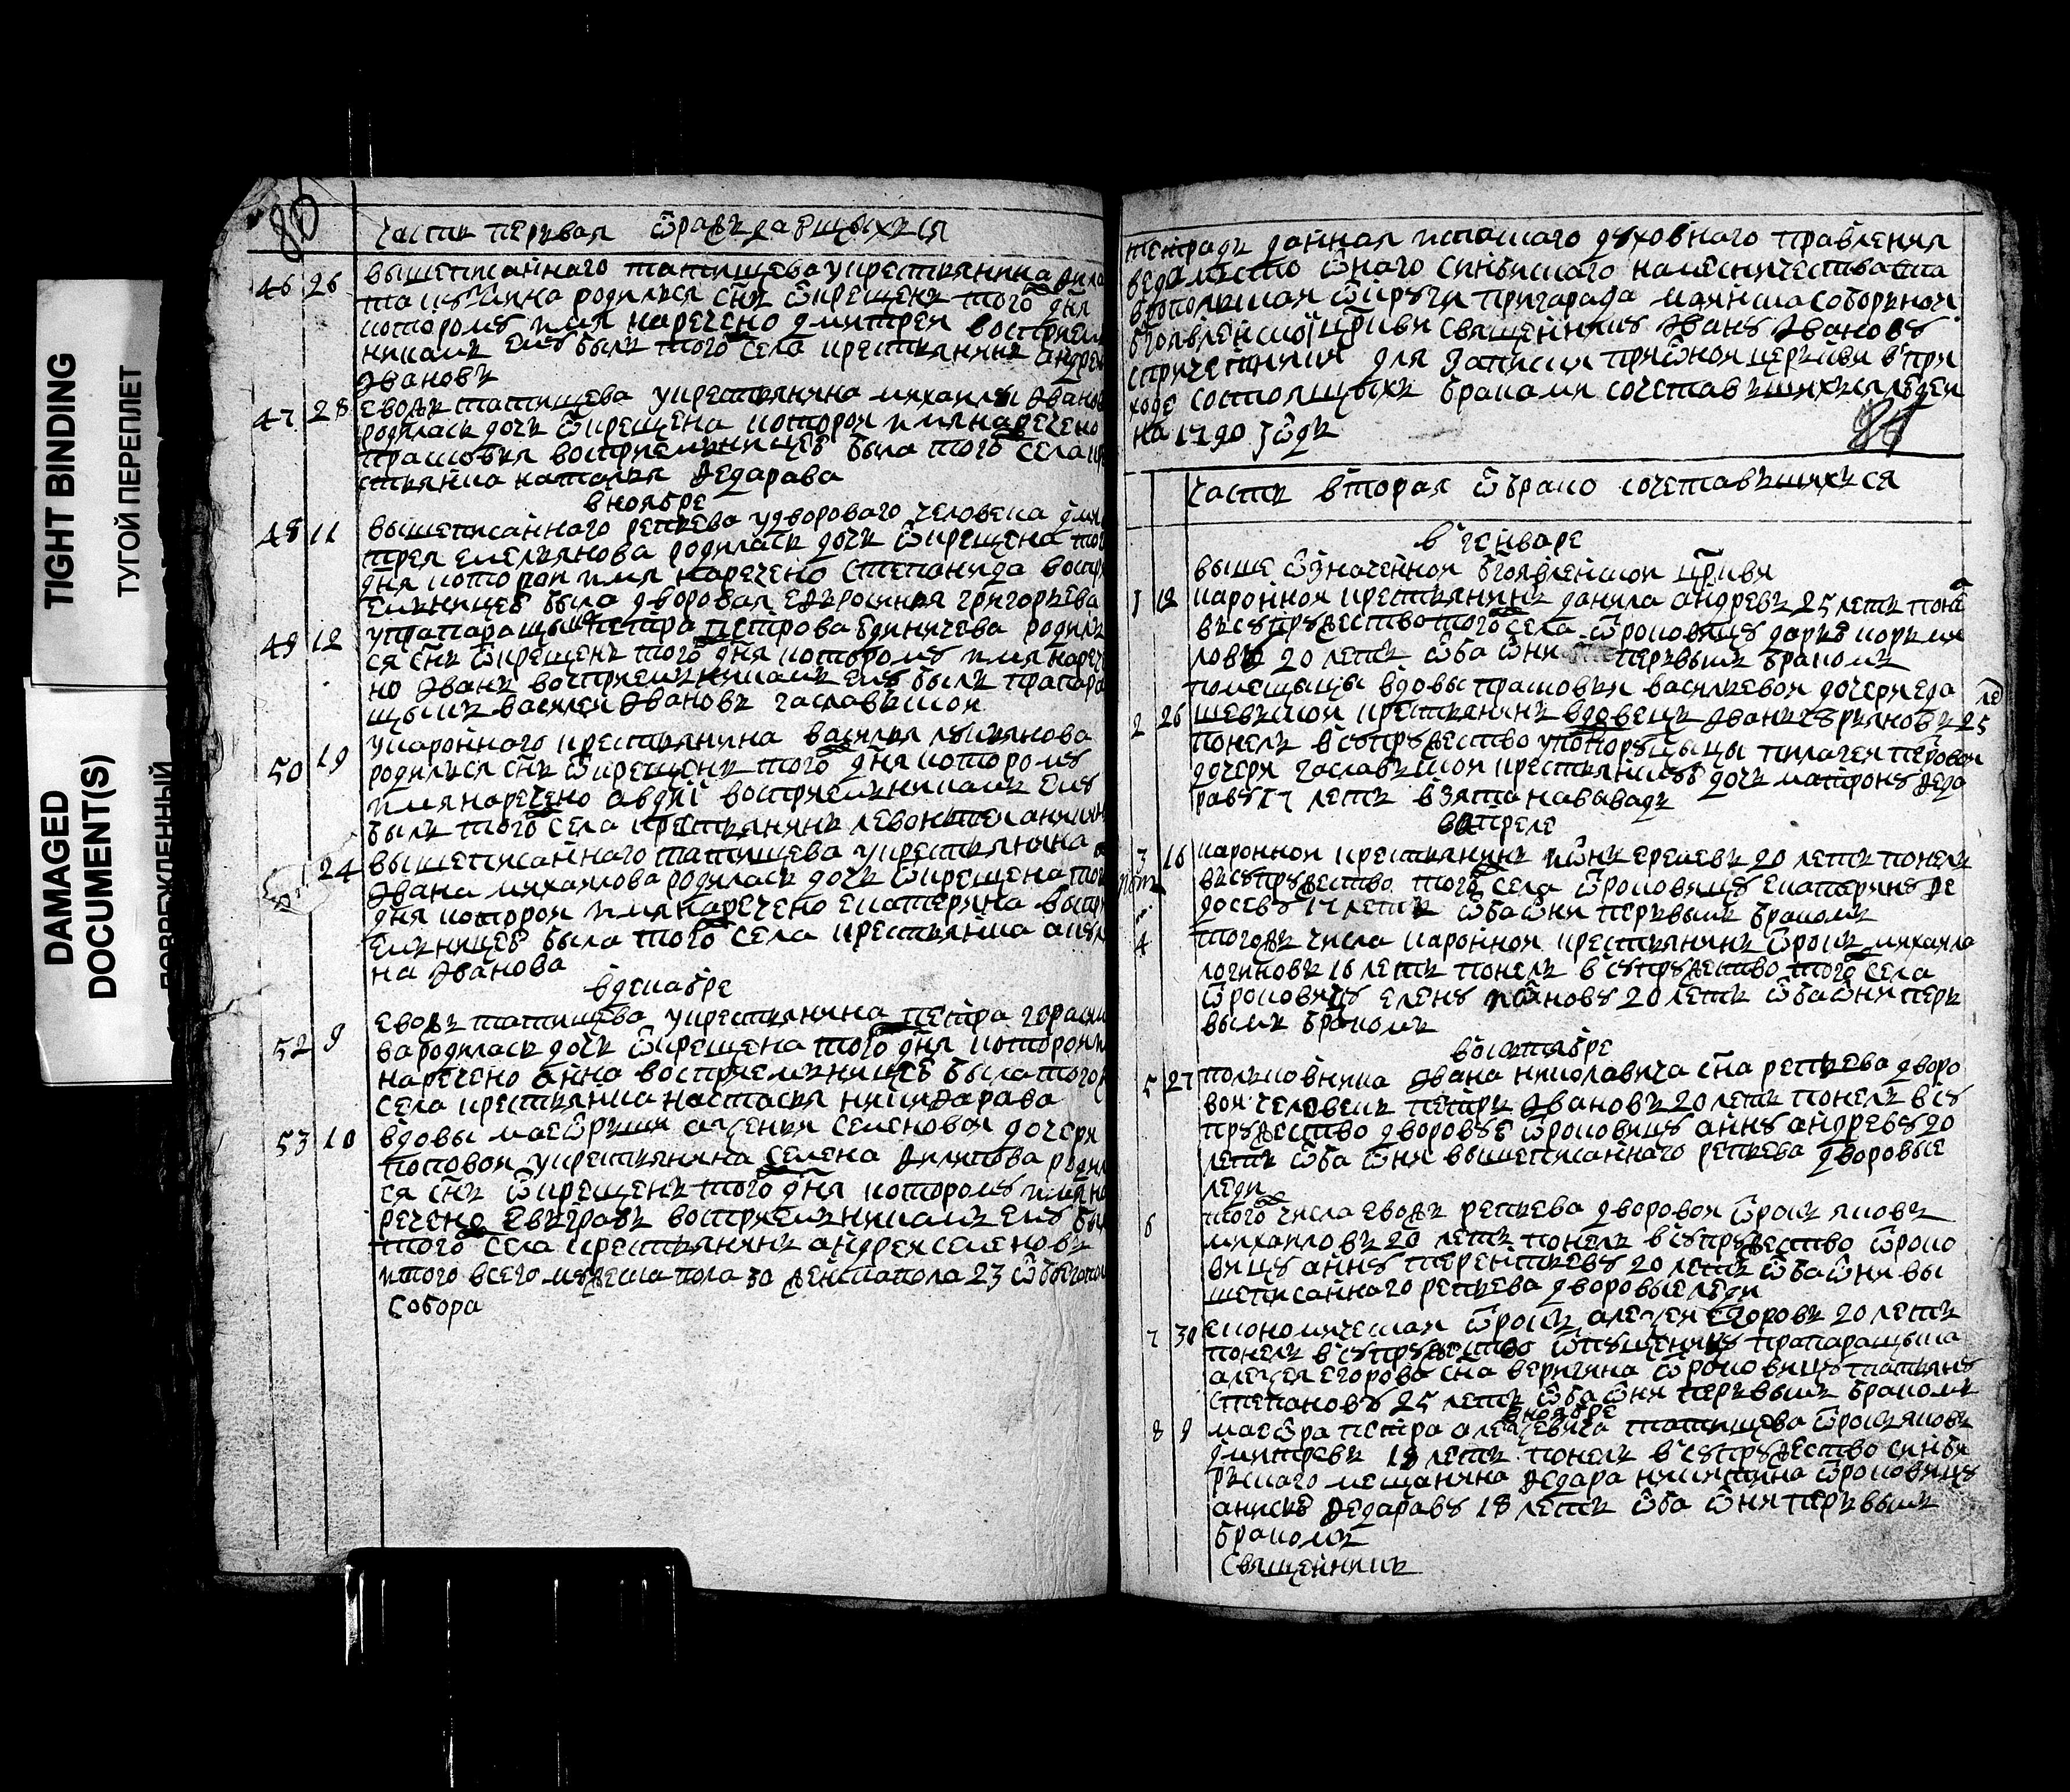 TIGHT BINDING
ТУГОЙ ПЕРЕПЛЕТ
DAMAGED
DOCUMENT(S)
ПОВРЕЖДЕННЫЙ
80
часть первая ѿраждающыхъся
46 26 вышеписаннаго татищева укрестьянина
родился сн҃ъ ѿкрещенъ того дн҃я
которому имя наречено дмитреи восприем
никамъ ему былъ того села крестьянинъ андреи
ивановъ
47 28 евожъ татищева укрестьянина михаилы ивано
родилась дочь ѿкрещена которои имя наречено
прасковья восприемницею была того села кре
стьянка наталья ѳедарава
вноябре
48 11 вышеписаннаго репьева удвороваго человека дми
трея емельянова родилась дочь ѿкрещена того
дня которои имя наречено степанида воспри
емьницею была дворовая еѳросинья григорьева
49 12 упрапаращыка петра петрова родилъ
ся сн҃ъ ѿкрещенъ того дн҃я которому имя нарече
но иванъ восприемьникамъ ему былъ прапара
щыкъ василеи ивановъ чаславъскои
50 19 укароннаго крестьянина василья лукьянова
родилься сн҃ъ ѿкрещенъ того дн҃я которому
имя наречено авдѣи восприемьникамъ ему
былъ того села крестьянинъ левонтеи
51 24 вышеписаннаго татищева укрестьянина
ивана михаилова родилась дочь ѿкрещена того
дня которои имя наречено екатерина воспри
емьницею была того села крестьянка акули
на иванова
вдекабре
52 9 евожъ татищева укрестьянина петра гераси
ва родилась дочь ѿкрещена того дн҃я которои имя
наречено анна восприемьницею была того
села крестьянка настасья никиѳарава
53 10 вдовы маеѡръши аксеньи семеновои дочери
поповои укрестьянина семена ѳилипова родил
ся сн҃ъ ѿкрещенъ того дн҃я которому имя на
речено евъграѳъ восприемьникамъ ему был
того села крестьянинъ андреи семеновъ
итого всего мужеска пола 30 женскапола 23 ѡбоегопол
собора
тетрадь данная исполскаго духовнаго правления
ведомство ѡнаго синбирскаго намесничества ста
врополькаи ѡкруги пригарада маинска соборънои
бг҃оявленскои цр҃кви священнику ивану иванову
спричетники для записки приѡнои церькви вприи
ходе состоящыхъ браками сочетавъшихъся людеи
на 1790 годъ
81
часть вторая ѡбрако сочетавъшихъся
вгенваре
выше ѡзначеннои бг҃оявленскои цр҃кви
1 12 кароннои крестьянинъ данила андревъ 25 летъ понелъ
въсупружество того села ѿроковицу дарью корьми
лову 20 летъ ѡба ѡни перьвымъ бракомъ
2 26 помещыцы вдовы прасковьи васильевои дочери еда
шевъскои крестьянинъ вдовецъ иванъ 25 ле
понелъ всупружество употорутчыцы пилагеи петровои
дочери чаславъскои крестьянскую дочь матрону ѳеда
раву 17 летъ взята навывадъ
вапреле
3 16 кароннои крестьянинъ иѡнъ еремевъ 20 летъ понелъ
въсупружество того села ѿроковицу екатерину ѳе
досеву 17 летъ ѡба ѡни перьвымъ бракомъ
4 тогожъ числа кароннои крестьянинъ ѿрокъ михаила
логиновъ 16 летъ понелъ всупружество того села
ѿроковицу елену иѡнову 20 летъ ѡба ѡни перь
вымъ бракомъ
воктябре
5 27 полковника ивана николавича сн҃а репьева дворо
вои человекъ петръ ивановъ 20 летъ понелъ всу
пружество дворовую ѿроковицу анну андреву 20
летъ ѡба ѡни вышеписаннаго репьева дворовые
леди
6 того числа евожъ репьева дворовои ѿрокъ яковъ
михаиловъ 20 летъ понелъ всупружество ѿроко
вицу анну терентьеву 20 летъ ѡба ѡни вы
шеписаннаго репьева дворовые леди
7 30 економическаи ѿрокъ алексеи едоровъ 20 летъ
понелъ всупружество ѿпущеницу прапаращыка
алексея егорова сн҃а веригина ѿроковицу татьяну
степанову 25 летъ ѡба ѡни перьвымъ бракомъ
вноябре
8 9 маеѡра петра алексевича татищева ѿрокъ яковъ
дмитревъ 18 летъ понелъ всупружество синби
ръскаго мещанина ѳедара никитина ѿроковицу
анисью ѳедараву 18 летъ ѡба ѡни перьвымъ
бракомъ
священникъ